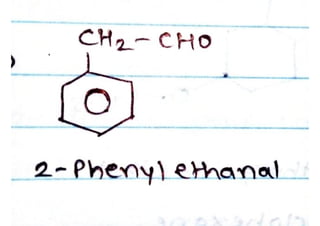 CH₂-CHO
2-Phenyl ethanal